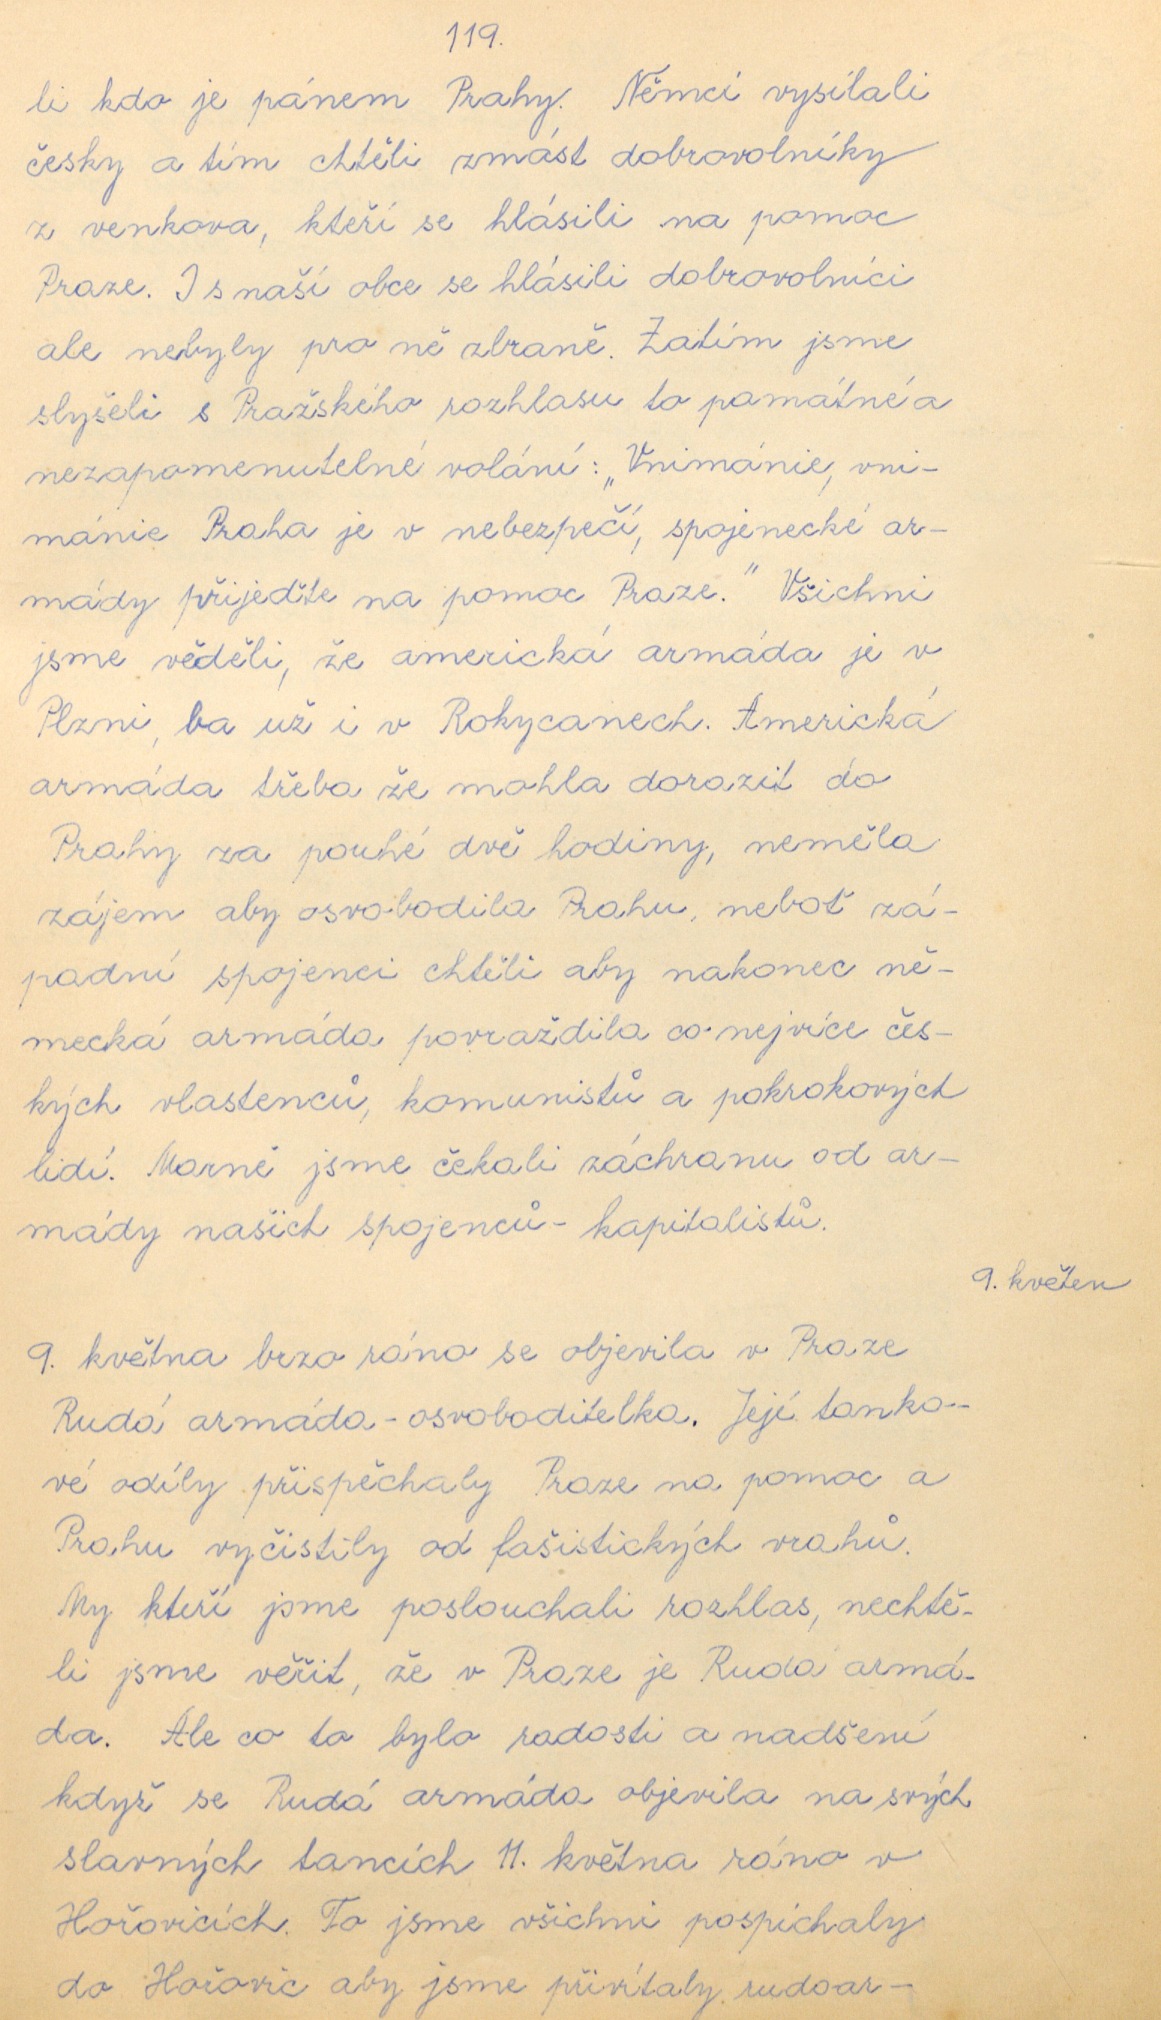 119.
li kdo je pánem Prahy. Němci vysílali
česky a tím chtěli zmást dobrovolníky
z venkova, kteří se hlásili na pomoc
Praze. I s naší obce se hlásili dobrovolníci
ale nebyly pro ně zbraně. Zatím jsme
slyšeli s Pražského rozhlasu to památné a
nezapomenutelné volání: „Vnimánie, vni-
mánie Praha je v nebezpečí, spojenecké ar-
mády přijeďte na pomoc Praze." Všichni
jsme věděli, že americká armáda je v
Plzni, ba už i v Rokycanech. Americká
armáda třeba že mohla dorazit do
Prahy za pouhé dvě hodiny, neměla
zájem aby osvobodila Prahu, neboť zá-
padní spojenci chtěli aby nakonec ně-
mecká armáda povraždila co nejvíce čes-
kých vlastenců, komunistů a pokrokových
lidí. Marně jsme čekali záchranu od ar-
mády našich spojenců - kapitalistů.
9. květen
9. května brzo ráno se objevila v Praze
Rudá armáda - osvoboditelka. Její tanko-
vé odíly přispěchaly Praze na pomoc a
Prahu vyčistily od fašistických vrahů.
My kteří jsme poslouchali rozhlas, nechtě-
li jsme věřit, že v Praze je Rudá armá-
da. Ale co to bylo radosti a nadšení
když se Rudá armáda objevila na svých
slavných tancích 11. května ráno v
Hořovicích. To jsme všichni pospíchaly
do Hořovic aby jsme přivítaly rudoar-